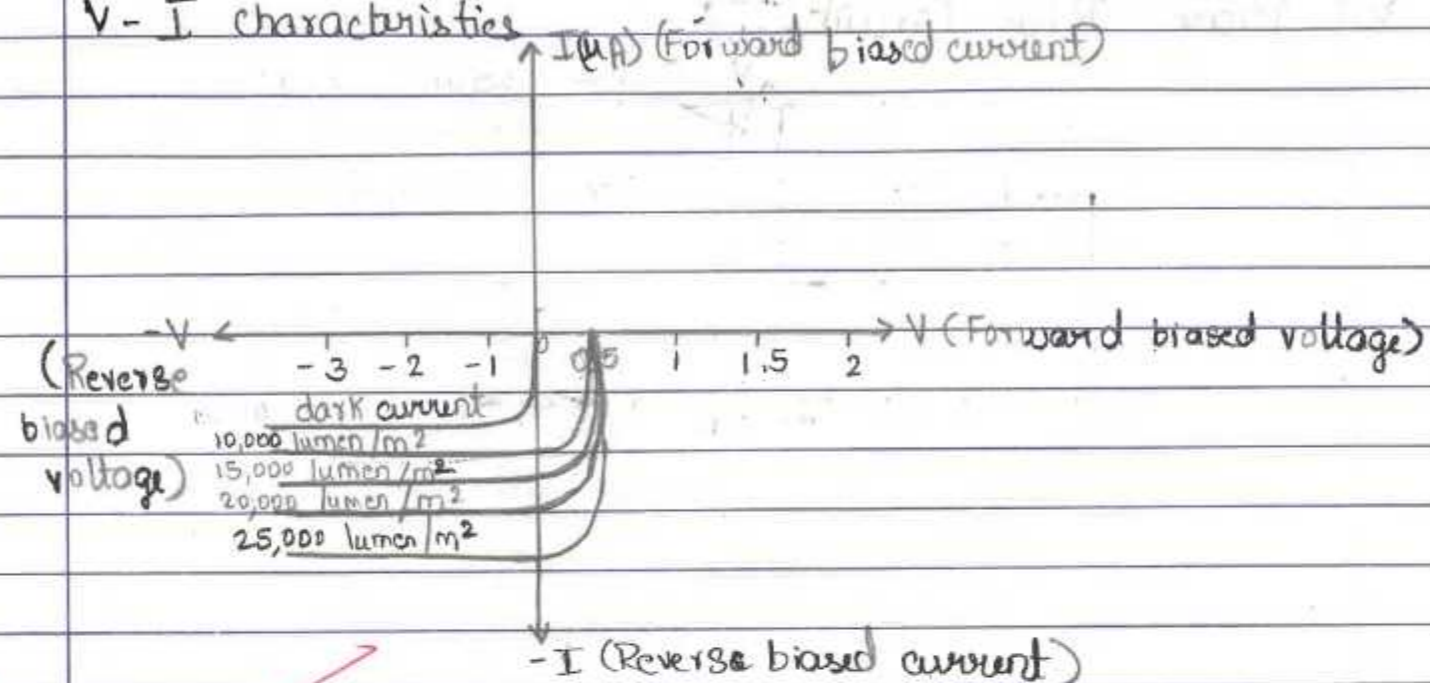 V - I characteristics
I(μA) (Forward biased current)
-V
V (Forward biased voltage)
- 3 - 2 - 1 0 0.5 1 1.5 2
(Reverse
biased
voltage)
dark current
10,000 lumen/m²
15,000 lumen/m²
20,000 lumen/m²
25,000 lumen/m²
-I (Reverse biased current)